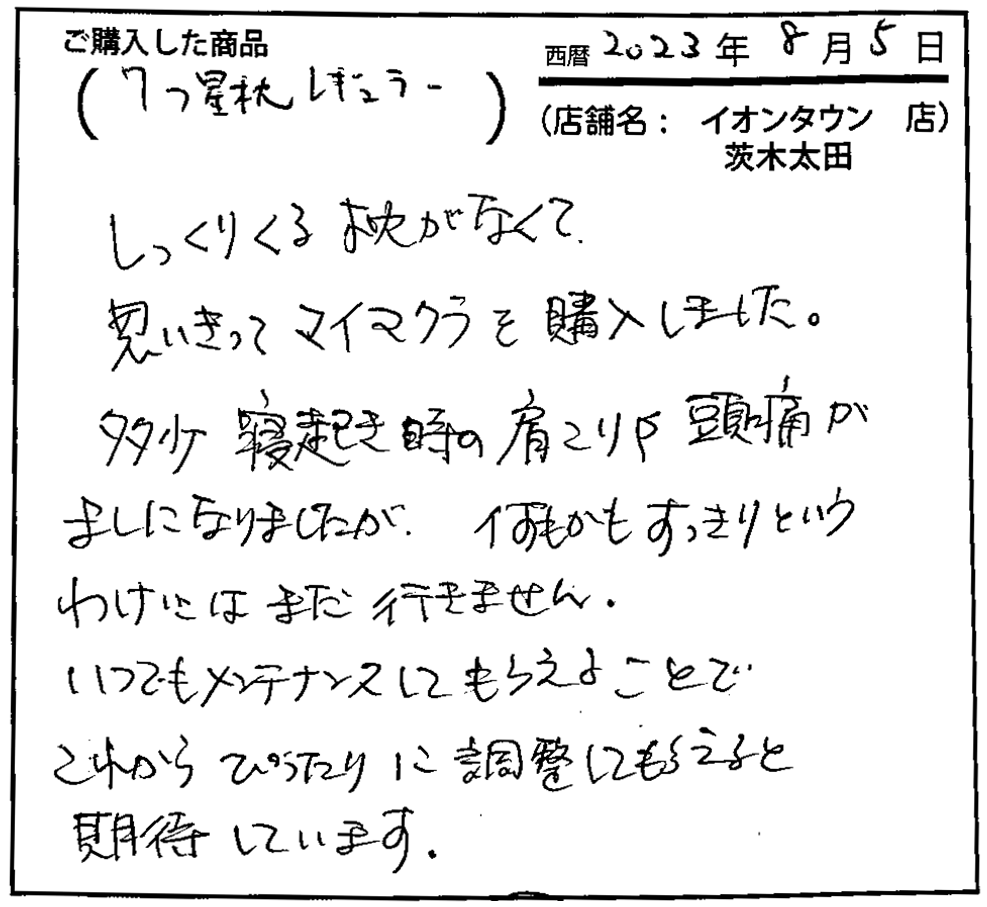 ご購入した商品
西暦 2023年 8月 5日
(7つ星枕 レギュラー)
(店舗名: イオンタウン 店)
茨木太田
しっくりくる枕がなくて、
思いきってマイマクラを購入しました。
多少寝起き時の肩こりや頭痛が
ましになりましたが、何もかもすっきりという
わけにはまだ行きません。
いつでもメンテナンスしてもらえることで
これからぴったりに調整してもらえると
期待しています。